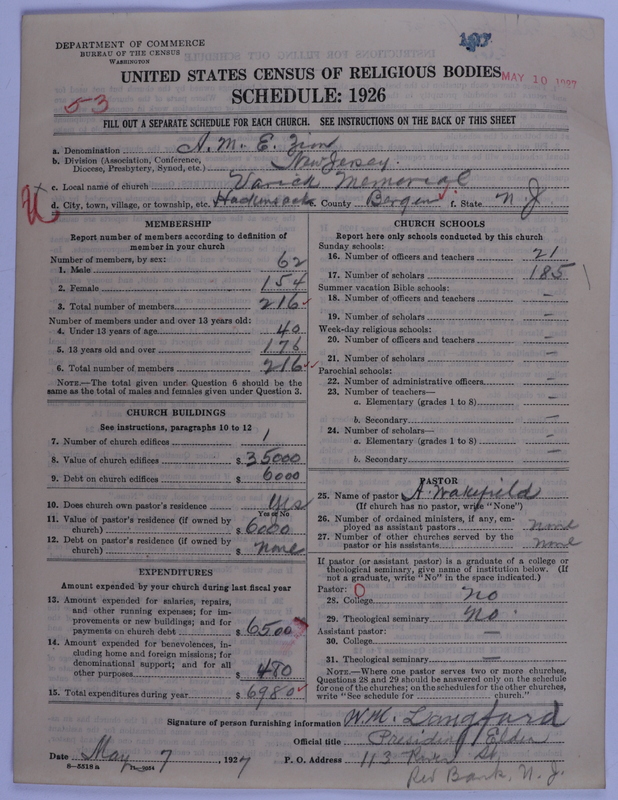 DEPARTMENT OF COMMERCE
BUREAU OF THE CENSUS
WASHINGTON
UNITED STATES CENSUS OF RELIGIOUS BODIES
MAY 10 1927
SCHEDULE: 1926
53
FILL OUT A SEPARATE SCHEDULE FOR EACH CHURCH. SEE INSTRUCTIONS ON THE BACK OF THIS SHEET
a. Denomination A. M. E. Zion
b. Division (Association, Conference, Diocese, Presbytery, Synod, etc.) New Jersey.
c. Local name of church Varick Memorial
d. City, town, village, or township, etc. Hackensack e. County Bergen f. State N. J
MEMBERSHIP
Report number of members according to definition of
member in your church
Number of members, by sex:
1. Male 62
2. Female 154
3. Total number of members 216
Number of members under and over 13 years old:
4. Under 13 years of age 40
5. 13 years old and over 176
6. Total number of members 216
NOTE.—The total given under Question 6 should be the
same as the total of males and females given under Question 3.
CHURCH BUILDINGS
See instructions, paragraphs 10 to 12
7. Number of church edifices 1
8. Value of church edifices $ 35000
9. Debt on church edifices $ 6000
10. Does church own pastor's residence yes
Yes or No
11. Value of pastor's residence (if owned by
church) $ 6000
12. Debt on pastor's residence (if owned by
church) $ none
EXPENDITURES
Amount expended by your church during last fiscal year
13. Amount expended for salaries, repairs,
and other running expenses; for im-
provements or new buildings; and for
payments on church debt $ 6500
14. Amount expended for benevolences, in-
cluding home and foreign missions; for
denominational support; and for all
other purposes $ 480
15. Total expenditures during year $ 6980
CHURCH SCHOOLS
Report here only schools conducted by this church
Sunday schools:
16. Number of officers and teachers 21
17. Number of scholars 185
Summer vacation Bible schools:
18. Number of officers and teachers —
19. Number of scholars —
Week-day religious schools:
20. Number of officers and teachers —
21. Number of scholars —
Parochial schools:
22. Number of administrative officers —
23. Number of teachers—
a. Elementary (grades 1 to 8) —
b. Secondary —
24. Number of scholars—
a. Elementary (grades 1 to 8) —
b. Secondary —
PASTOR
25. Name of pastor A. Wakefield
(If church has no pastor, write "None")
26. Number of ordained ministers, if any, em-
ployed as assistant pastors none
27. Number of other churches served by the
pastor or his assistants none
If pastor (or assistant pastor) is a graduate of a college or
theological seminary, give name of institution below. (If
not a graduate, write "No" in the space indicated.)
Pastor: 0
28. College no
29. Theological seminary No.
Assistant pastor: —
30. College
31. Theological seminary —
NOTE.—Where one pastor serves two or more churches,
Questions 28 and 29 should be answered only on the schedule
for one of the churches; on the schedules for the other churches,
write "See schedule for church."
Signature of person furnishing information W.M. Langford
Official title Presiding Elder
Date May 7, 1927 P. O. Address 113 River St,
8—5518a 11—9054
Red Bank, N. J.